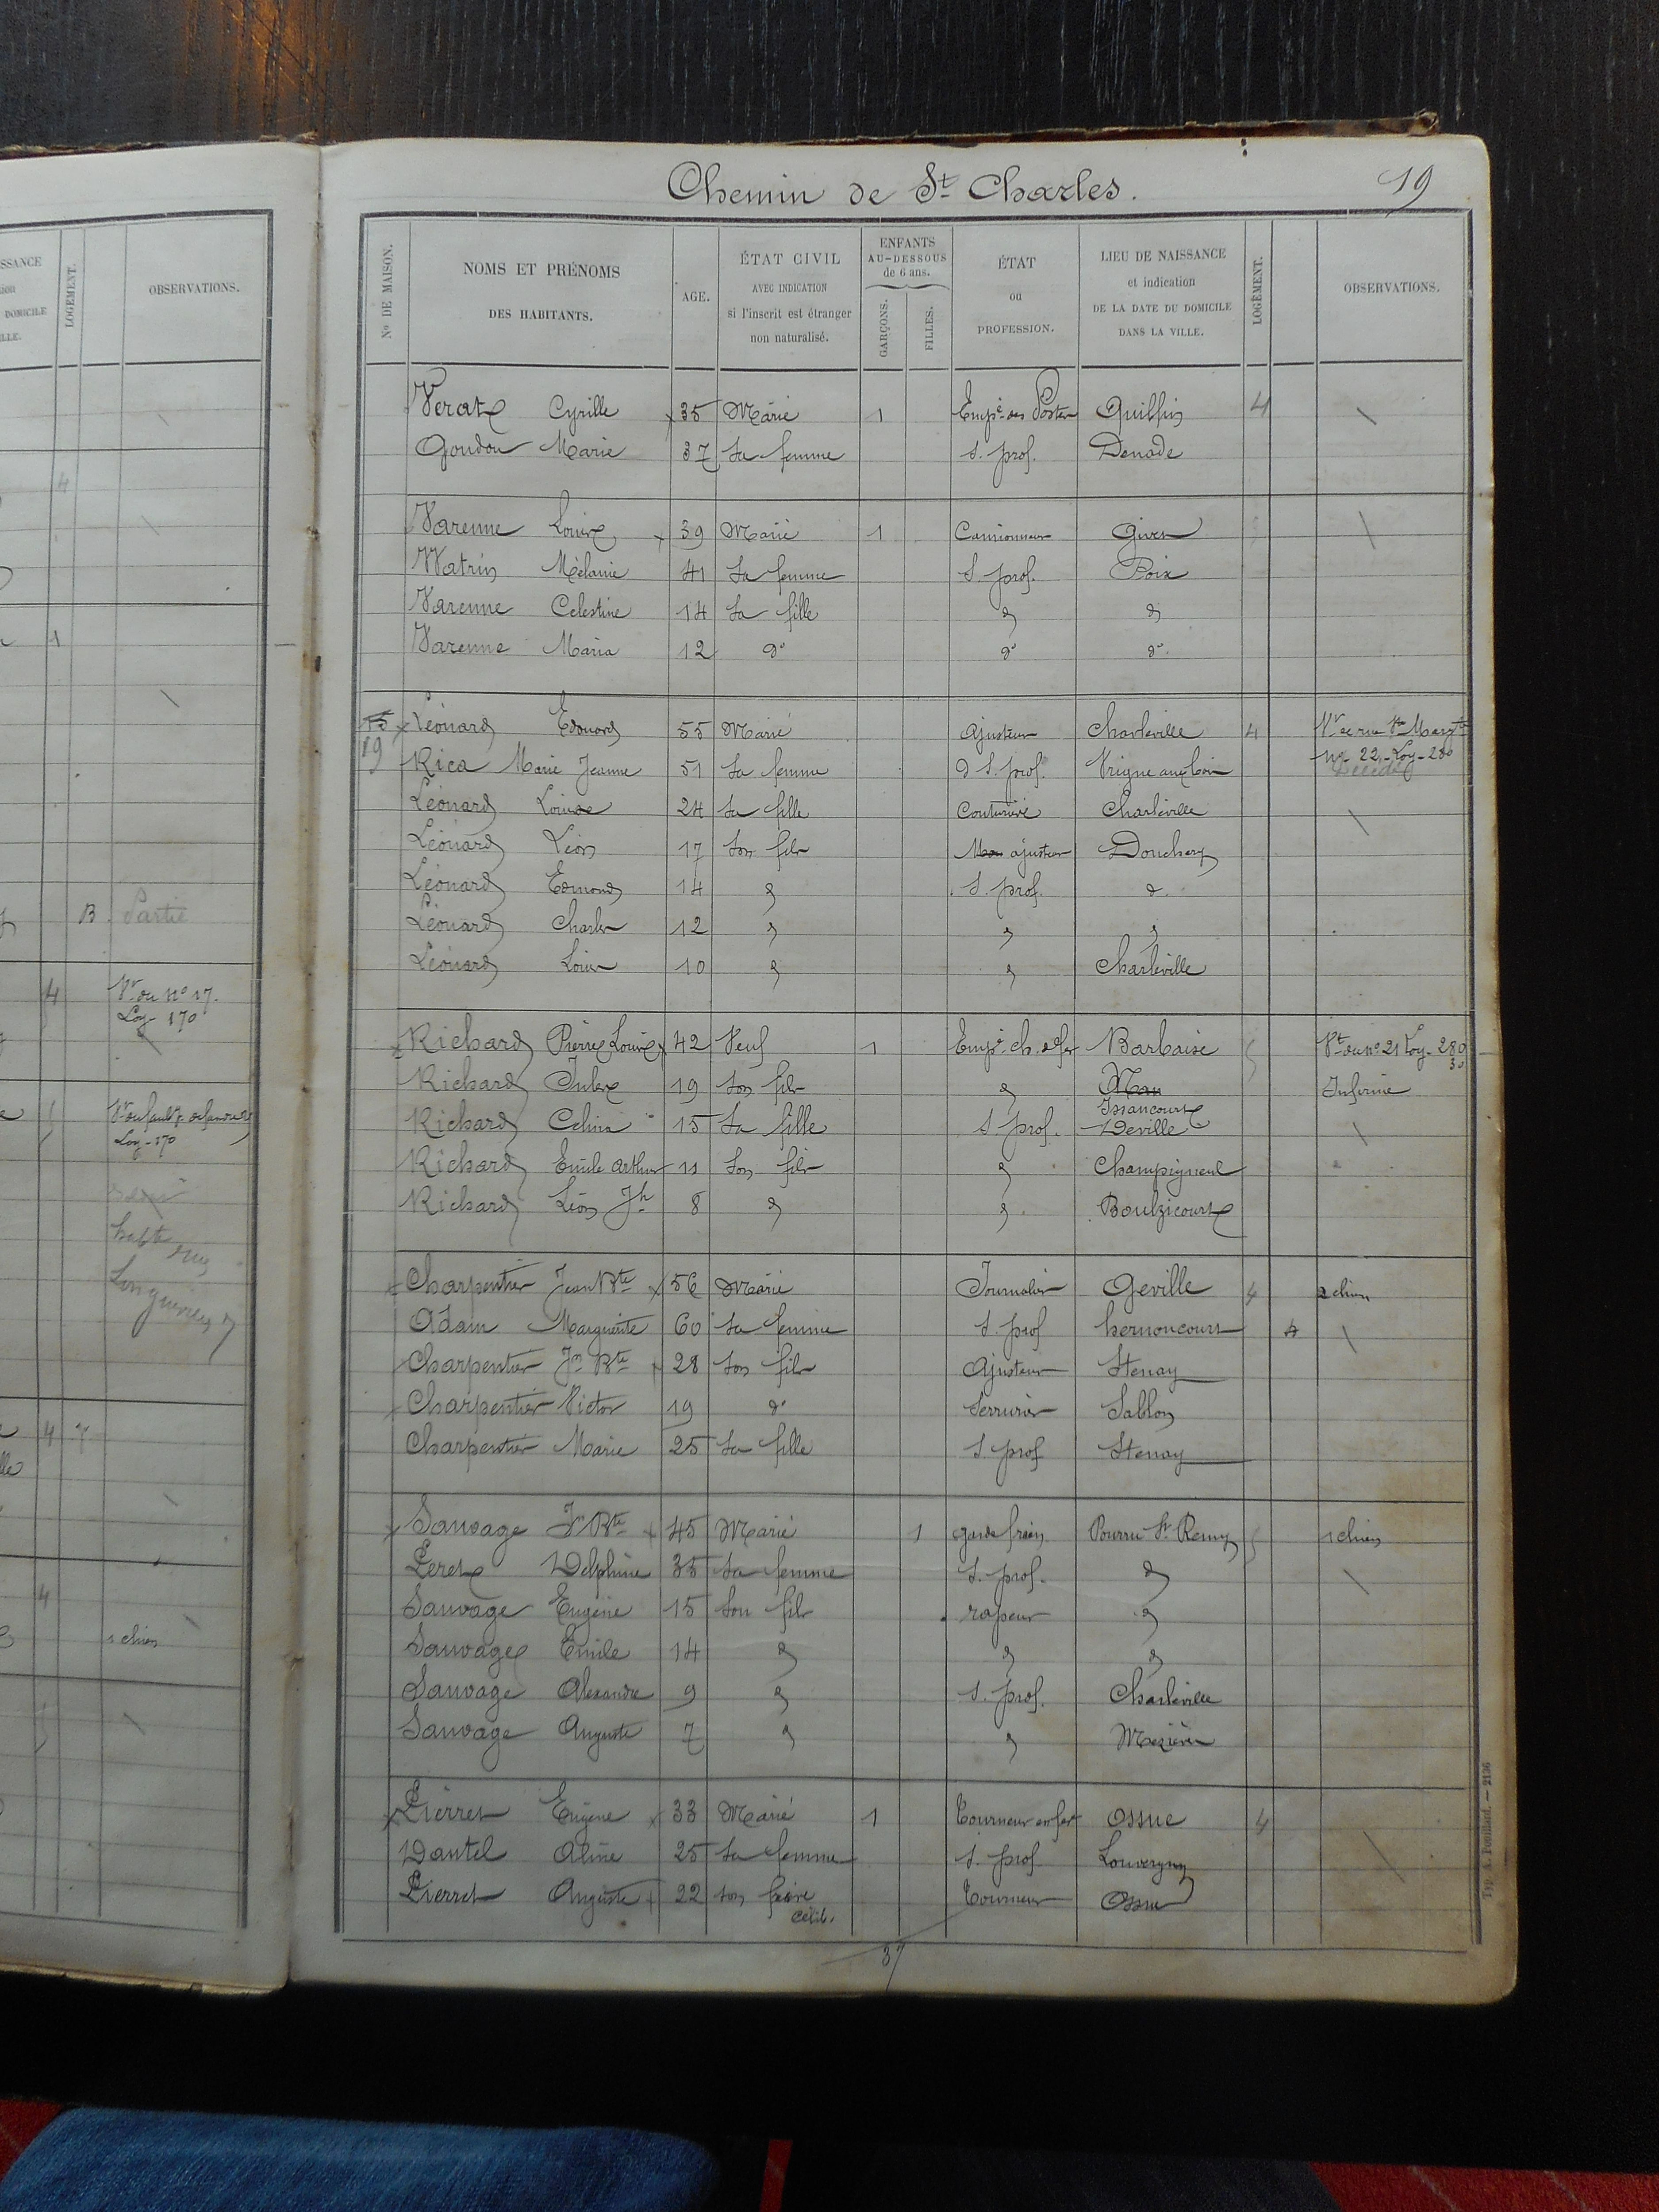 Chemin de St Charles. 19
SSANCE
DOMICILE
LLE.
LOGEMENT.
OBSERVATIONS.
4
1
B Partie
4 Vt du no 17.
Loy - 170
Loy - 170
4
4
1 chien
No DE MAISON.
NOMS ET PRÉNOMS
DES HABITANTS.
AGE.
ÉTAT CIVIL
AVEC INDICATION
si l'inscrit est étranger
non naturalisé.
ENFANTS
AU-DESSOUS
de 6 ans.
GARÇONS.
FILLES.
ÉTAT
ou
PROFESSION.
LIEU DE NAISSANCE
et indication
DE LA DATE DU DOMICILE
DANS LA VILLE.
LOGEMENT.
OBSERVATIONS.
Cyrille 35 Marié 1 Empé des Postes 4
Goudou Marie 37 Sa femme S. prof.
Varenne Louis 39 Marié 1 Camionneur Givet
Watrin Mélanie 41 Sa femme S. prof. Poix
Varenne Celestine 14 Sa fille d d
Varenne Maria 12 do do do
15 Léonard Edouard 55 Marié ajusteur Charleville 4
19 Rica Marie Jeanne 51 Sa femme S. prof. Vrigne aux bois no 22. Loy - 280
Léonard Louise 24 Sa fille Couturière Charleville
Léonard Léon 17 Son fils ajusteur Donchery
Léonard Edmond 14 d S. prof. d
Léonard Charles 12 d d d
Léonard Louis 10 d d Charleville
Richard Pierre Louis 42 Veuf 1 Empé ch. de fer Barbaise Vt du no 21 Loy - 280
30
Richard Jules 19 Son fils d Infirme
Issancourt
Richard Celina 15 Sa fille S prof. Deville
Richard Emile Arthur 11 Son fils d Champigneul
Richard Léon Jh 8 d d Boulzicourt
Charpentier Jean Bte 56 Marié Journalier Geville 4 2 chiens
Adam Marguerite 60 Sa femme S. prof hernoncourt
Charpentier Jn Bte 28 Son fils Ajusteur Stenay
Charpentier Victor 19 do Serrurier Sablon
Charpentier Marie 25 Sa fille S. prof Stenay
Sauvage Jn Bte 45 Marié 1 garde frein Pourru St Remy 1 chien
Peret Delphine 35 Sa femme S. prof. d
Sauvage Eugène 15 Son fils rapeur d
Sauvage Emile 14 d d d
Sauvage Alexandre 9 d S. prof. Charleville
Sauvage Auguste 7 d d Mezières
Pierret Eugène 33 Marié 1 Tourneur en fer Ossue 4
Dautel Aline 25 Sa femme S. prof Louvergny
Pierret Auguste 22 son frère Tourneur Ossue
Célib.
37
Typ. A. Pouillard. — 2136